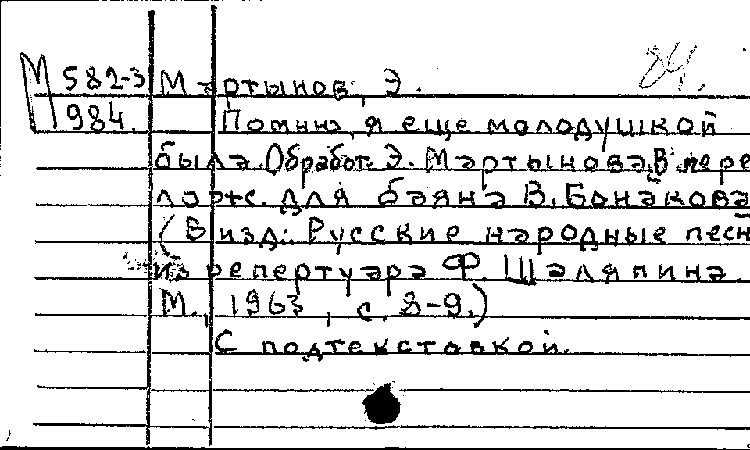 М 582-3 Мартынов, Э.
984. Помню, я еще молодушкой
была. Обработ. Э. Мартынова. В пере
лож. для баяна В. Бонакова
(В изд.: Русские народные песн
из репертуара Ф. Шаляпина.
М., 1963, с. 8-9.)
С подтекстовкой.
84.